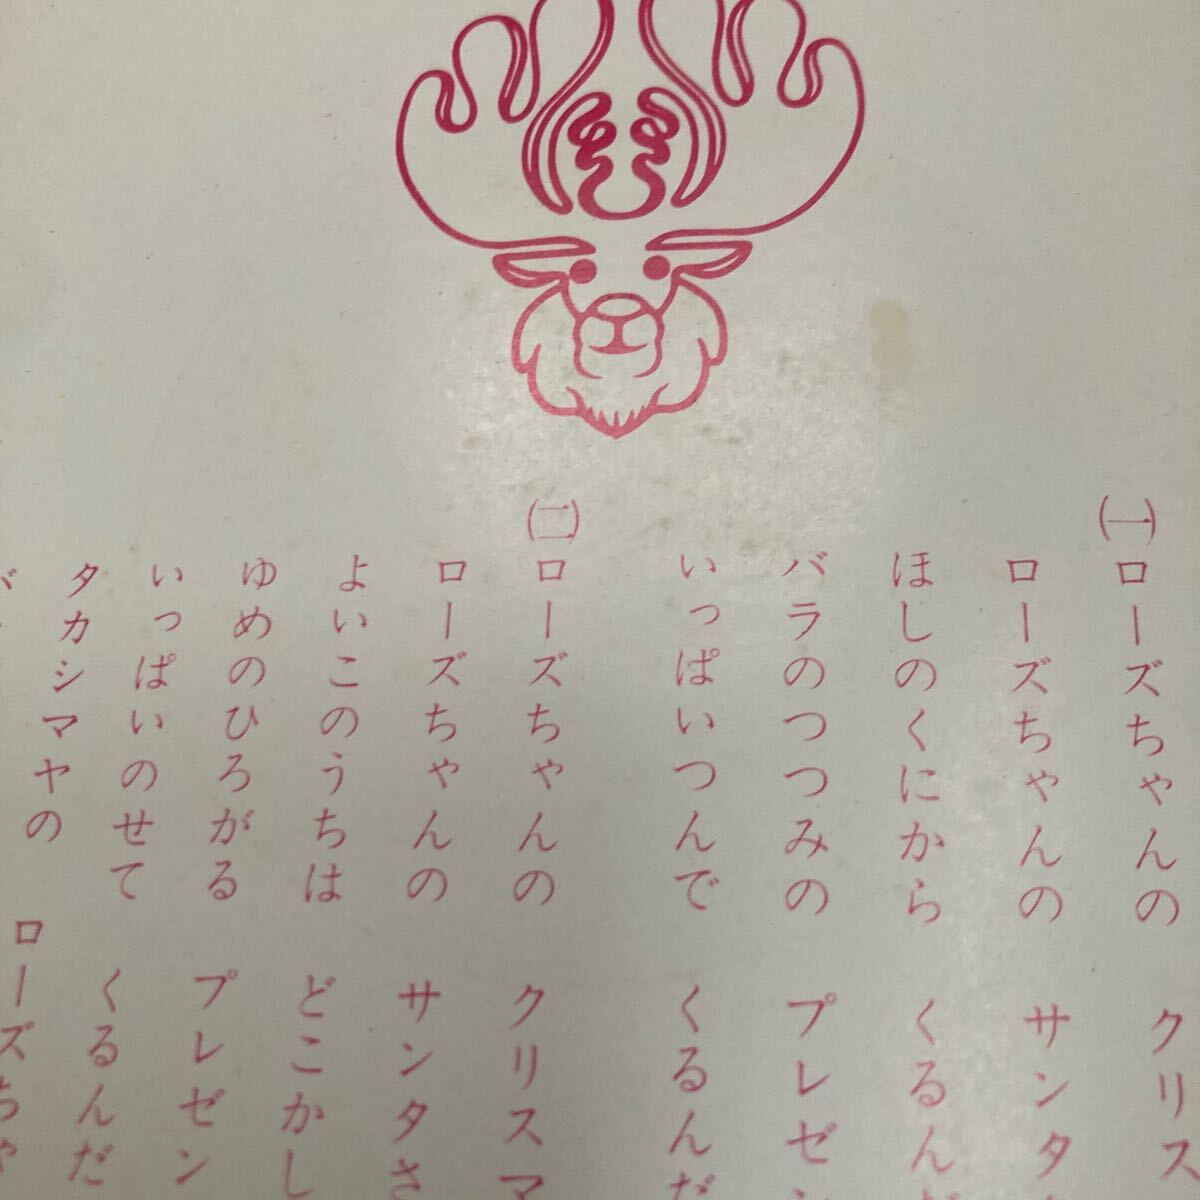 (一)ローズちゃんの クリス
ローズちゃんの サンタ
ほしのくにから くるんだ
バラのつつみの プレゼン
いっぱいつんで くるんだ
(二)ローズちゃんの クリスマ
ローズちゃんの サンタさ
よいこのうちは どこかし
ゆめのひろがる プレゼン
いっぱいのせて くるんだ
タカシマヤの ローズちゃ